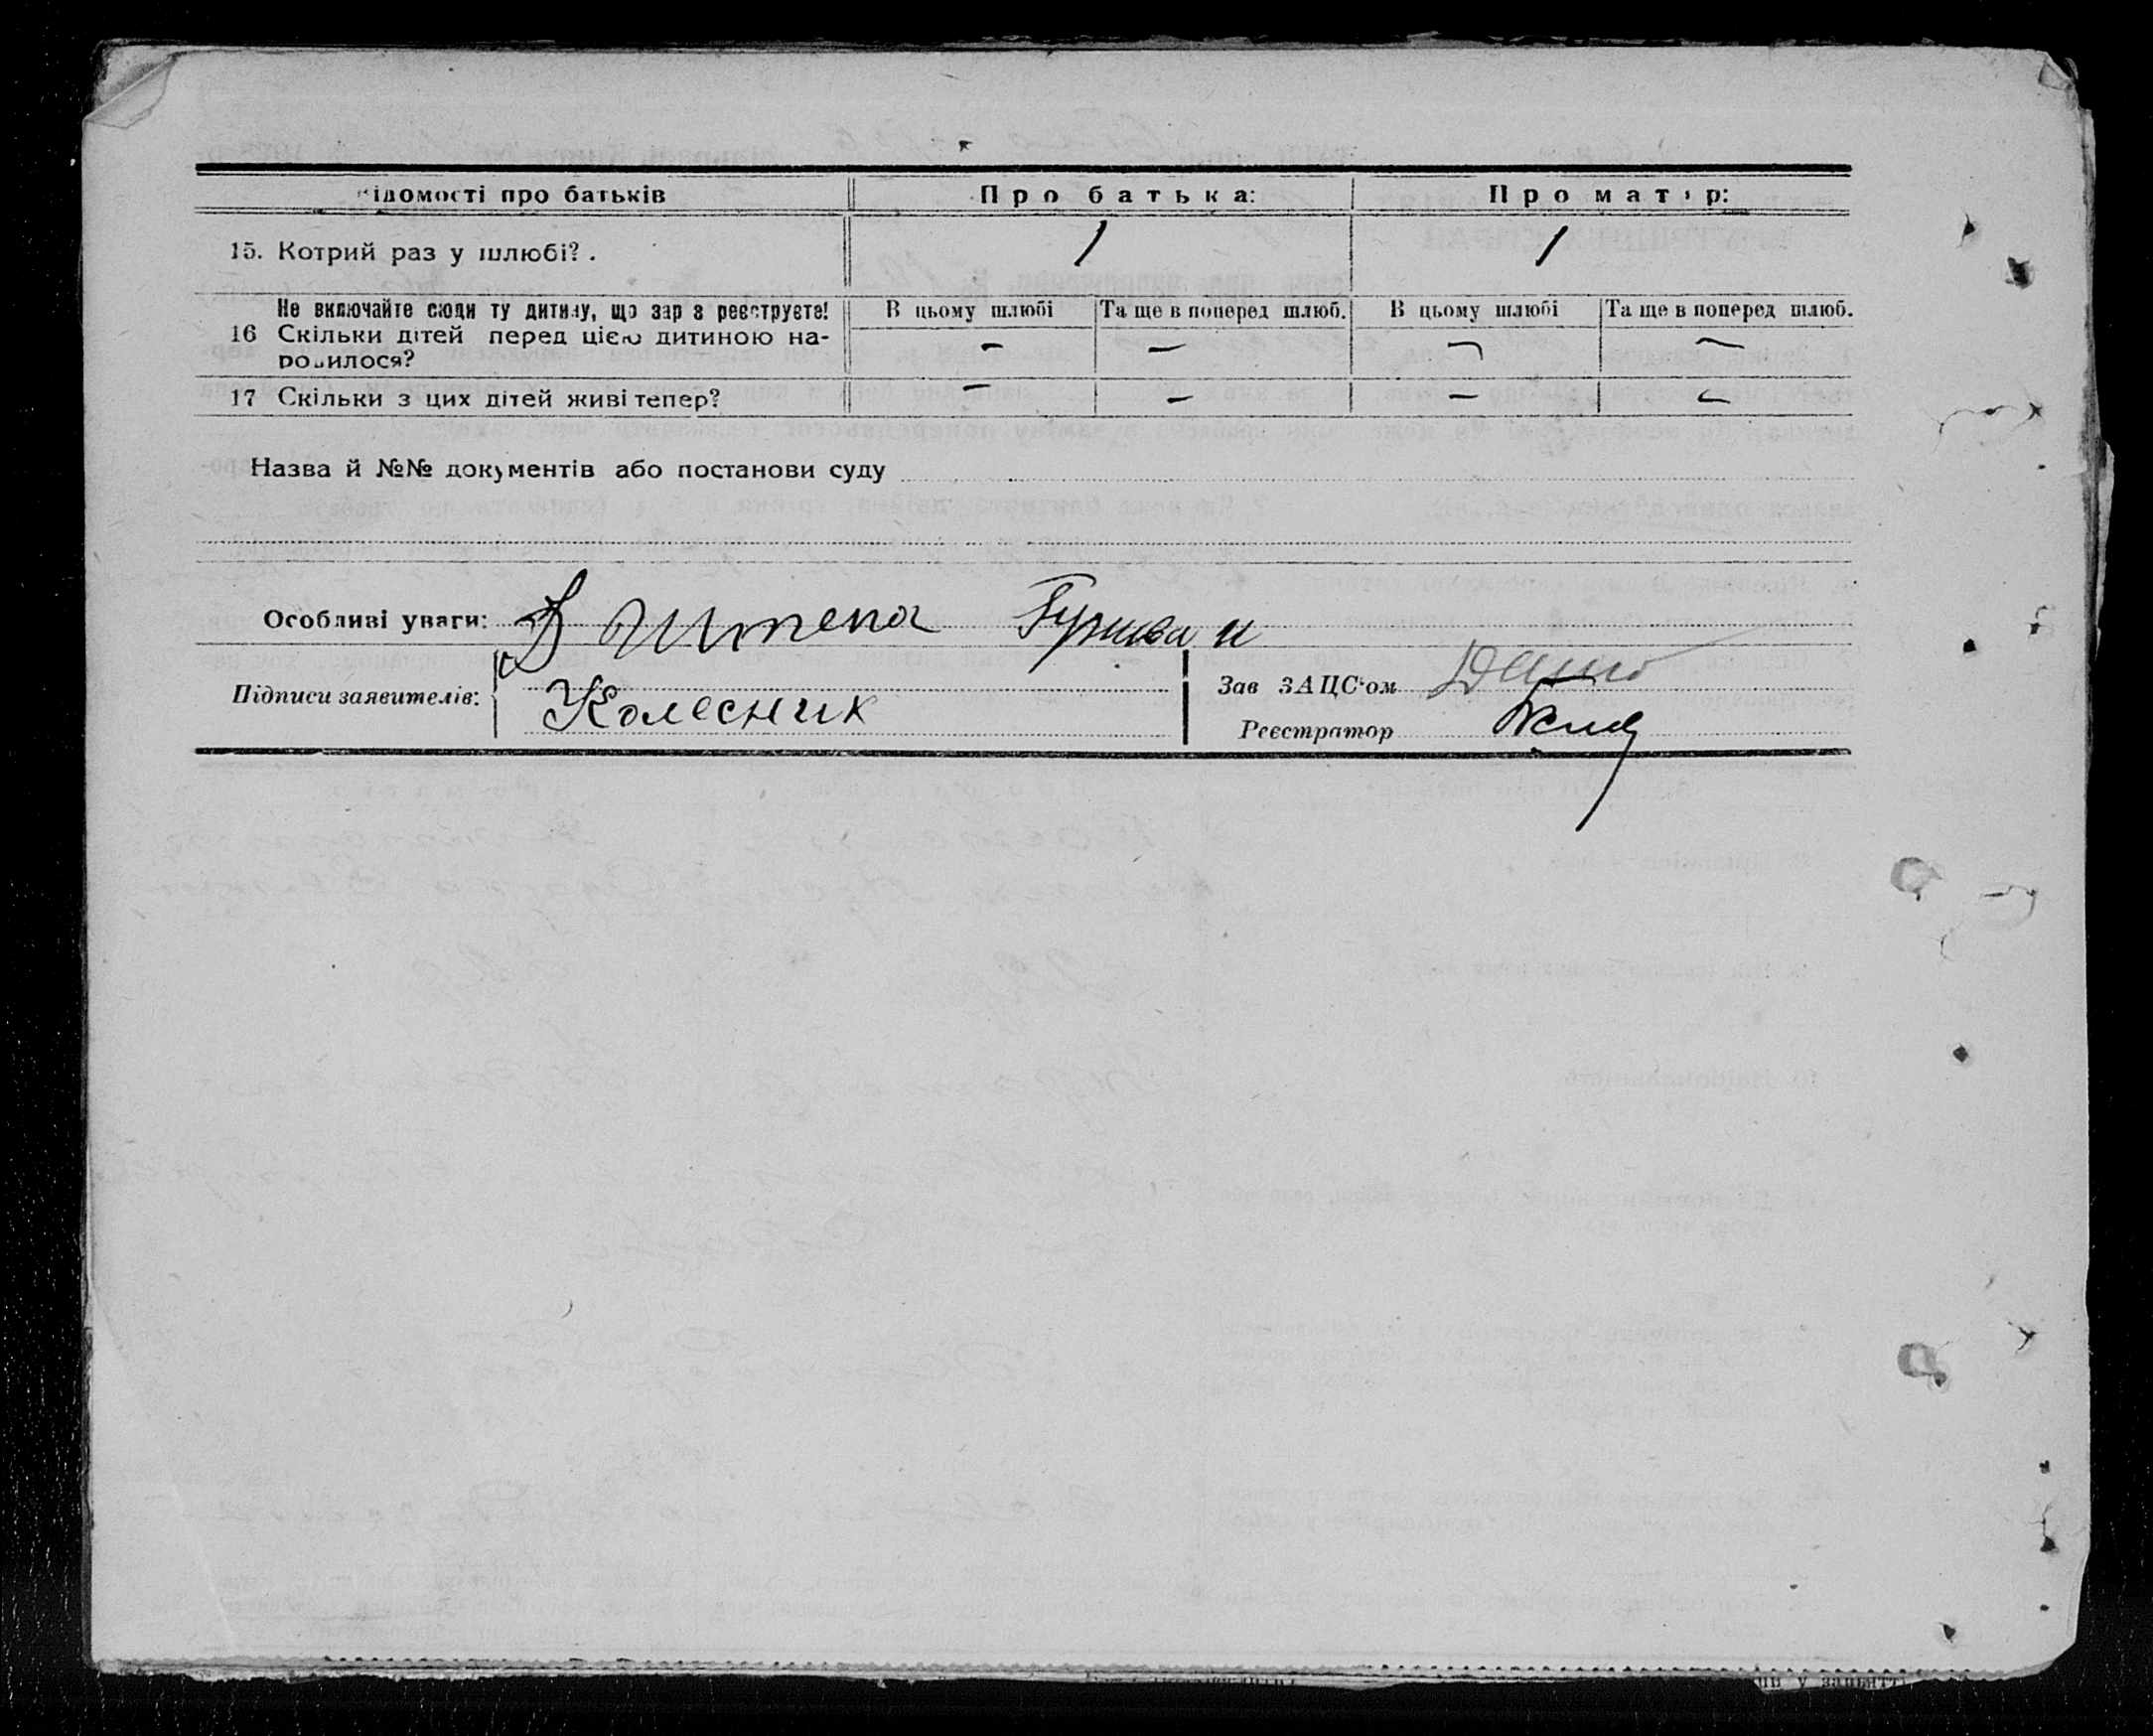 ідомості про батьків Про батька: Про мат р:
15. Котрий раз у шлюбі? . 1 1
Не включайте сюди ту дитину, що зар з реєструєте! В цьому шлюбі Та ще в поперед шлюб. В цьому шлюбі Та ще в поперед шлюб.
16 Скільки дітей перед цією дитиною на-
родилося? — — — —
17 Скільки з цих дітей живі тепер? — — — —
Назва й №№ документів або постанови суду
Особливі уваги:
Підписи заявителів: Зав ЗАЦС'ом
Колесник
Реєстратор